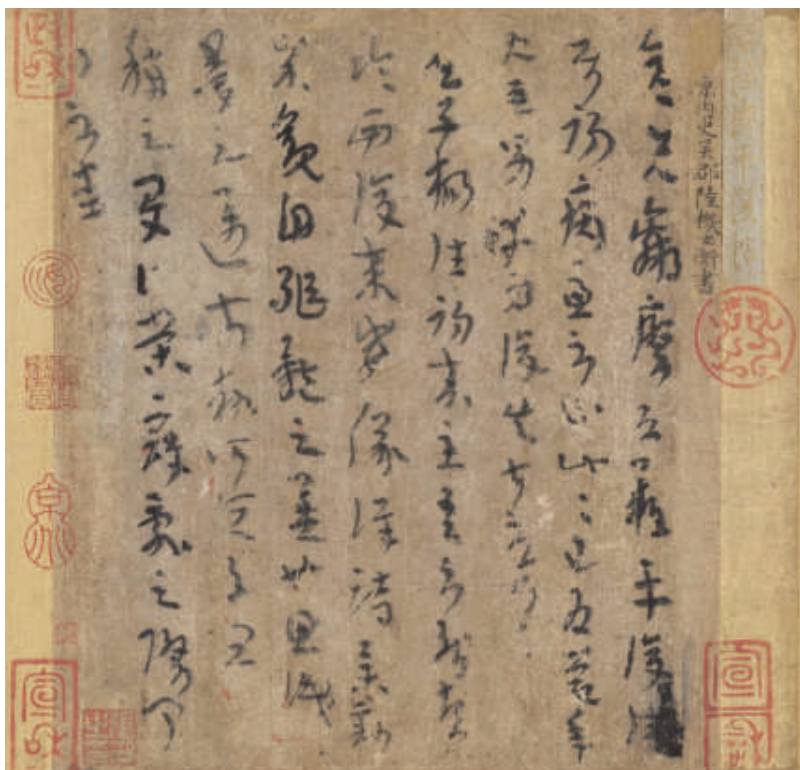 晉內史吳郡陸機士衡書
彥先羸瘵恐難平復往屬
初病慮不止此此已為慶承
使唯男幸為復失前憂耳
吳子楊往初來主吾不能盡
臨西復來威儀詳跱舉動
成觀自軀體之美也思識
量之邁前勢所恆有宜
稱之夏伯榮寇亂之際聞
問不悉
宣和